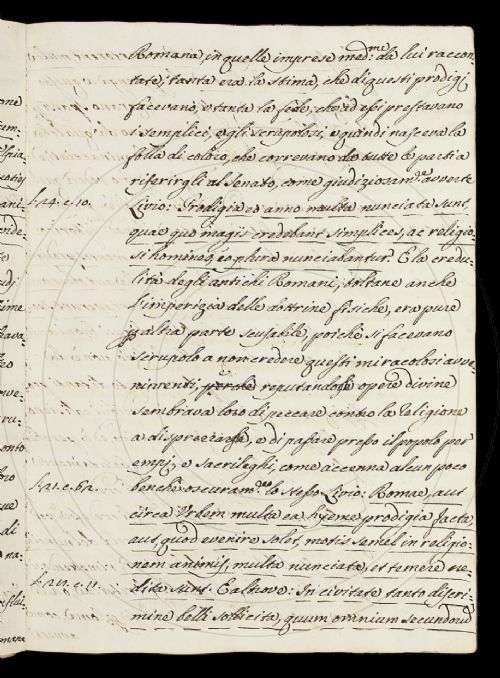 Romana in quelle imprese med:me da lui raccon-
tate; tanta era la stima, che di questi prodigj
facevano, e tanta la fede, che ad essi prestavano
i semplici, e gli scrupolosi, e quindi nasceva la
folla di coloro, che correvano da tutte le parti a
riferirgli al Senato, come giudiziosam:te avverte
L. 24. c. 10. Livio: Prodigia eo anno multa nunciata sunt,
quae quo magis credebant simplices, ac religio-
si homines, eo plura nunciabantur. E la credu-
lità degli antichi Romani, toltane anche
l'imperizia delle dottrine fisiche, era pure
p altra parte scusabile, poichè si facevano
scrupolo a non credere questi miracolosi avve-
nimenti, perchè reputandogli opere divine
sembrava loro di peccare contro la religione
a disprezzarle, e di passare presso il popolo per
empj, e sacrileghi, come accenna alcun poco
L. 21. c. 62. benchè oscuram:te lo stesso Livio: Romae, aut
circa Urbem multa ea hyeme prodigia facta,
aut, quod evenire solet, motis semel in religio-
nem animis, multa nunciata, et temere cre-
L. 27. c. 11. dita sunt. E altrove: In civitate tanto discri-
mine belli sollicita, quum omnium secundorum